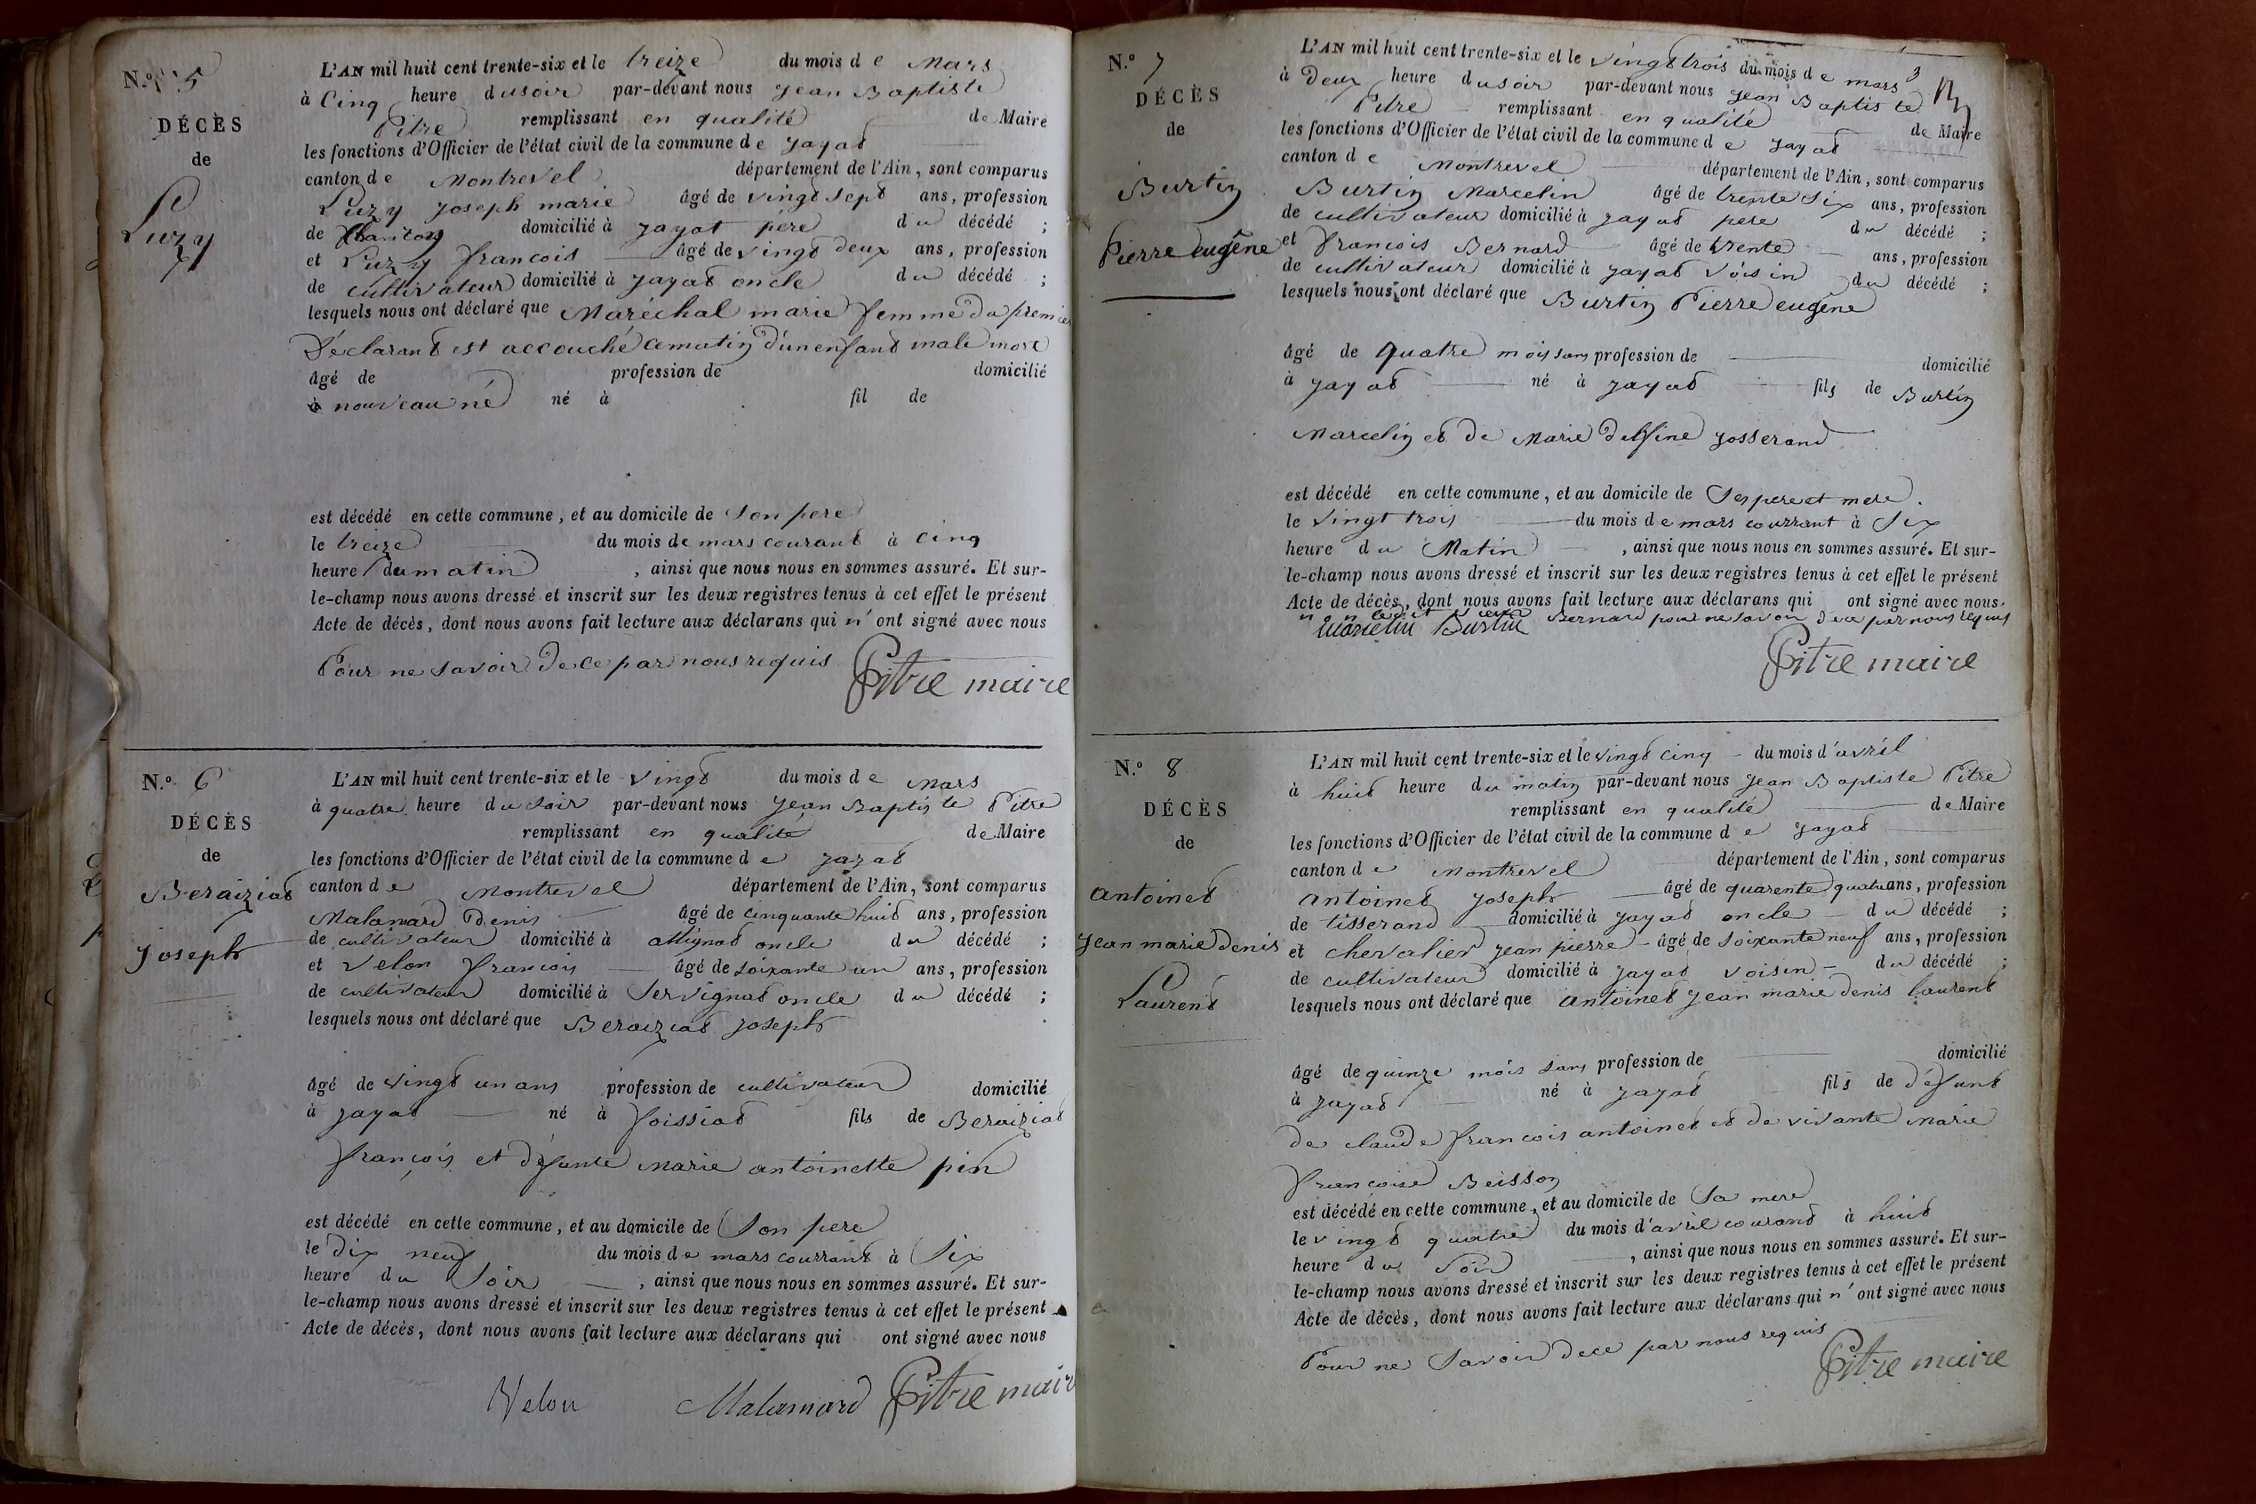 N.º 5
DÉCÈS
de
Luzy
L'AN mil huit cent trente-six et le treize du mois de Mars
à Cinq heure du soir par-devant nous Jean Baptiste
Pitre remplissant en qualité de Maire
les fonctions d'Officier de l'état civil de la commune de Jayat
canton de Montrevel département de l'Ain, sont comparus
Luzy Joseph marie âgé de vingt sept ans, profession
de domicilié à Jayat père du décédé ;
et Luzy francois âgé de vingt deux ans, profession
de cultivateur domicilié à Jayat oncle du décédé ;
lesquels nous ont déclaré que Maréchal marie femme du premier
Déclarant est accouché ce matin d'un enfant male mort
âgé de profession de domicilié
à nouveau né né à fil de
est décédé en cette commune, et au domicile de Son pere
le treize du mois de mars courant à Cinq
heure du matin , ainsi que nous nous en sommes assuré. Et sur-
le-champ nous avons dressé et inscrit sur les deux registres tenus à cet effet le présent
Acte de décès, dont nous avons fait lecture aux déclarans qui n'ont signé avec nous
Pour ne Savoir de ce par nous requis Pitre maire
N.º 6
DÉCÈS
de
Beraiziat
Joseph
L'AN mil huit cent trente-six et le vingt du mois de Mars
à quatre heure du soir par-devant nous Jean Baptiste Pitre
remplissant en qualité de Maire
les fonctions d'Officier de l'état civil de la commune de Jayat
canton de Montrevel département de l'Ain, sont comparus
Malamard Denis âgé de cinquante huit ans, profession
de cultivateur domicilié à attignat oncle du décédé ;
et Velon francois âgé de soixante un ans, profession
de cultivateur domicilié à Servignat oncle du décédé ;
lesquels nous ont déclaré que Beraiziat Joseph
âgé de vingt un ans profession de cultivateur domicilié
à Jayat né à foissiat fils de Beraiziat
françois et défunte Marie antoinette pin
est décédé en cette commune, et au domicile de Son pere
le dix neuf du mois de mars courrant à Six
heure du Soir , ainsi que nous nous en sommes assuré. Et sur-
le-champ nous avons dressé et inscrit sur les deux registres tenus à cet effet le présent
Acte de décès, dont nous avons fait lecture aux déclarans qui ont signé avec nous
Velon Malamard Pitre maire
N.º 7
DÉCÈS
de
Burtin
Pierre eugêne
3
L'AN mil huit cent trente-six et le vingt trois du mois de mars
à Deux heure du soir par-devant nous Jean Baptiste
Pitre remplissant en qualité de Maire
les fonctions d'Officier de l'état civil de la commune de Jayat
canton de Montrevel département de l'Ain, sont comparus
Burtin Marcelin âgé de trente Six ans, profession
de cultivateur domicilié à Jayat pere du décédé ;
et francois Bernard âgé de trente ans, profession
de cultivateur domicilié à Jayat voisin du décédé ;
lesquels nous ont déclaré que Burtin Pierre eugêne
âgé de quatre mois sans profession de domicilié
à Jayat né à Jayat fils de Burtin
Marcelin et de Marie delfine Josserand
est décédé en cette commune, et au domicile de Ses pere et mere.
le Vingt trois du mois de mars courrant à Six
heure du Matin , ainsi que nous nous en sommes assuré. Et sur-
le-champ nous avons dressé et inscrit sur les deux registres tenus à cet effet le présent
Acte de décès, dont nous avons fait lecture aux déclarans qui ont signé avec nous.
Marcelin Burtin Bernard pour ne savoir de ce par nous requis
Pitre maire
N.º 8
DÉCÈS
de
antoinet
Jean marie denis
Laurent
L'AN mil huit cent trente-six et le vingt cinq du mois d'avril
à huit heure du matin par-devant nous Jean Baptiste Pitre
remplissant en qualité de Maire
les fonctions d'Officier de l'état civil de la commune de Jayat
canton de Montrevel département de l'Ain, sont comparus
antoinet Joseph âgé de quarente quatre ans, profession
de tisserand domicilié à Jayat oncle du décédé ;
et chevalier Jean pierre âgé de soixante neuf ans, profession
de cultivateur domicilié à Jayat voisin du décédé ;
lesquels nous ont déclaré que antoinet Jean marie denis laurent
âgé de quinze mois sans profession de domicilié
à Jayat né à Jayat fils de défunt
de claude francois antoinet et de vivante Marie
francoise Beisson
est décédé en cette commune, et au domicile de Sa mere
le vingt quatre du mois d'avril courant à huit
heure du Soir , ainsi que nous nous en sommes assuré. Et sur-
le-champ nous avons dressé et inscrit sur les deux registres tenus à cet effet le présent
Acte de décès, dont nous avons fait lecture aux déclarans qui n'ont signé avec nous
Pour ne Savoir de ce par nous requis Pitre maire